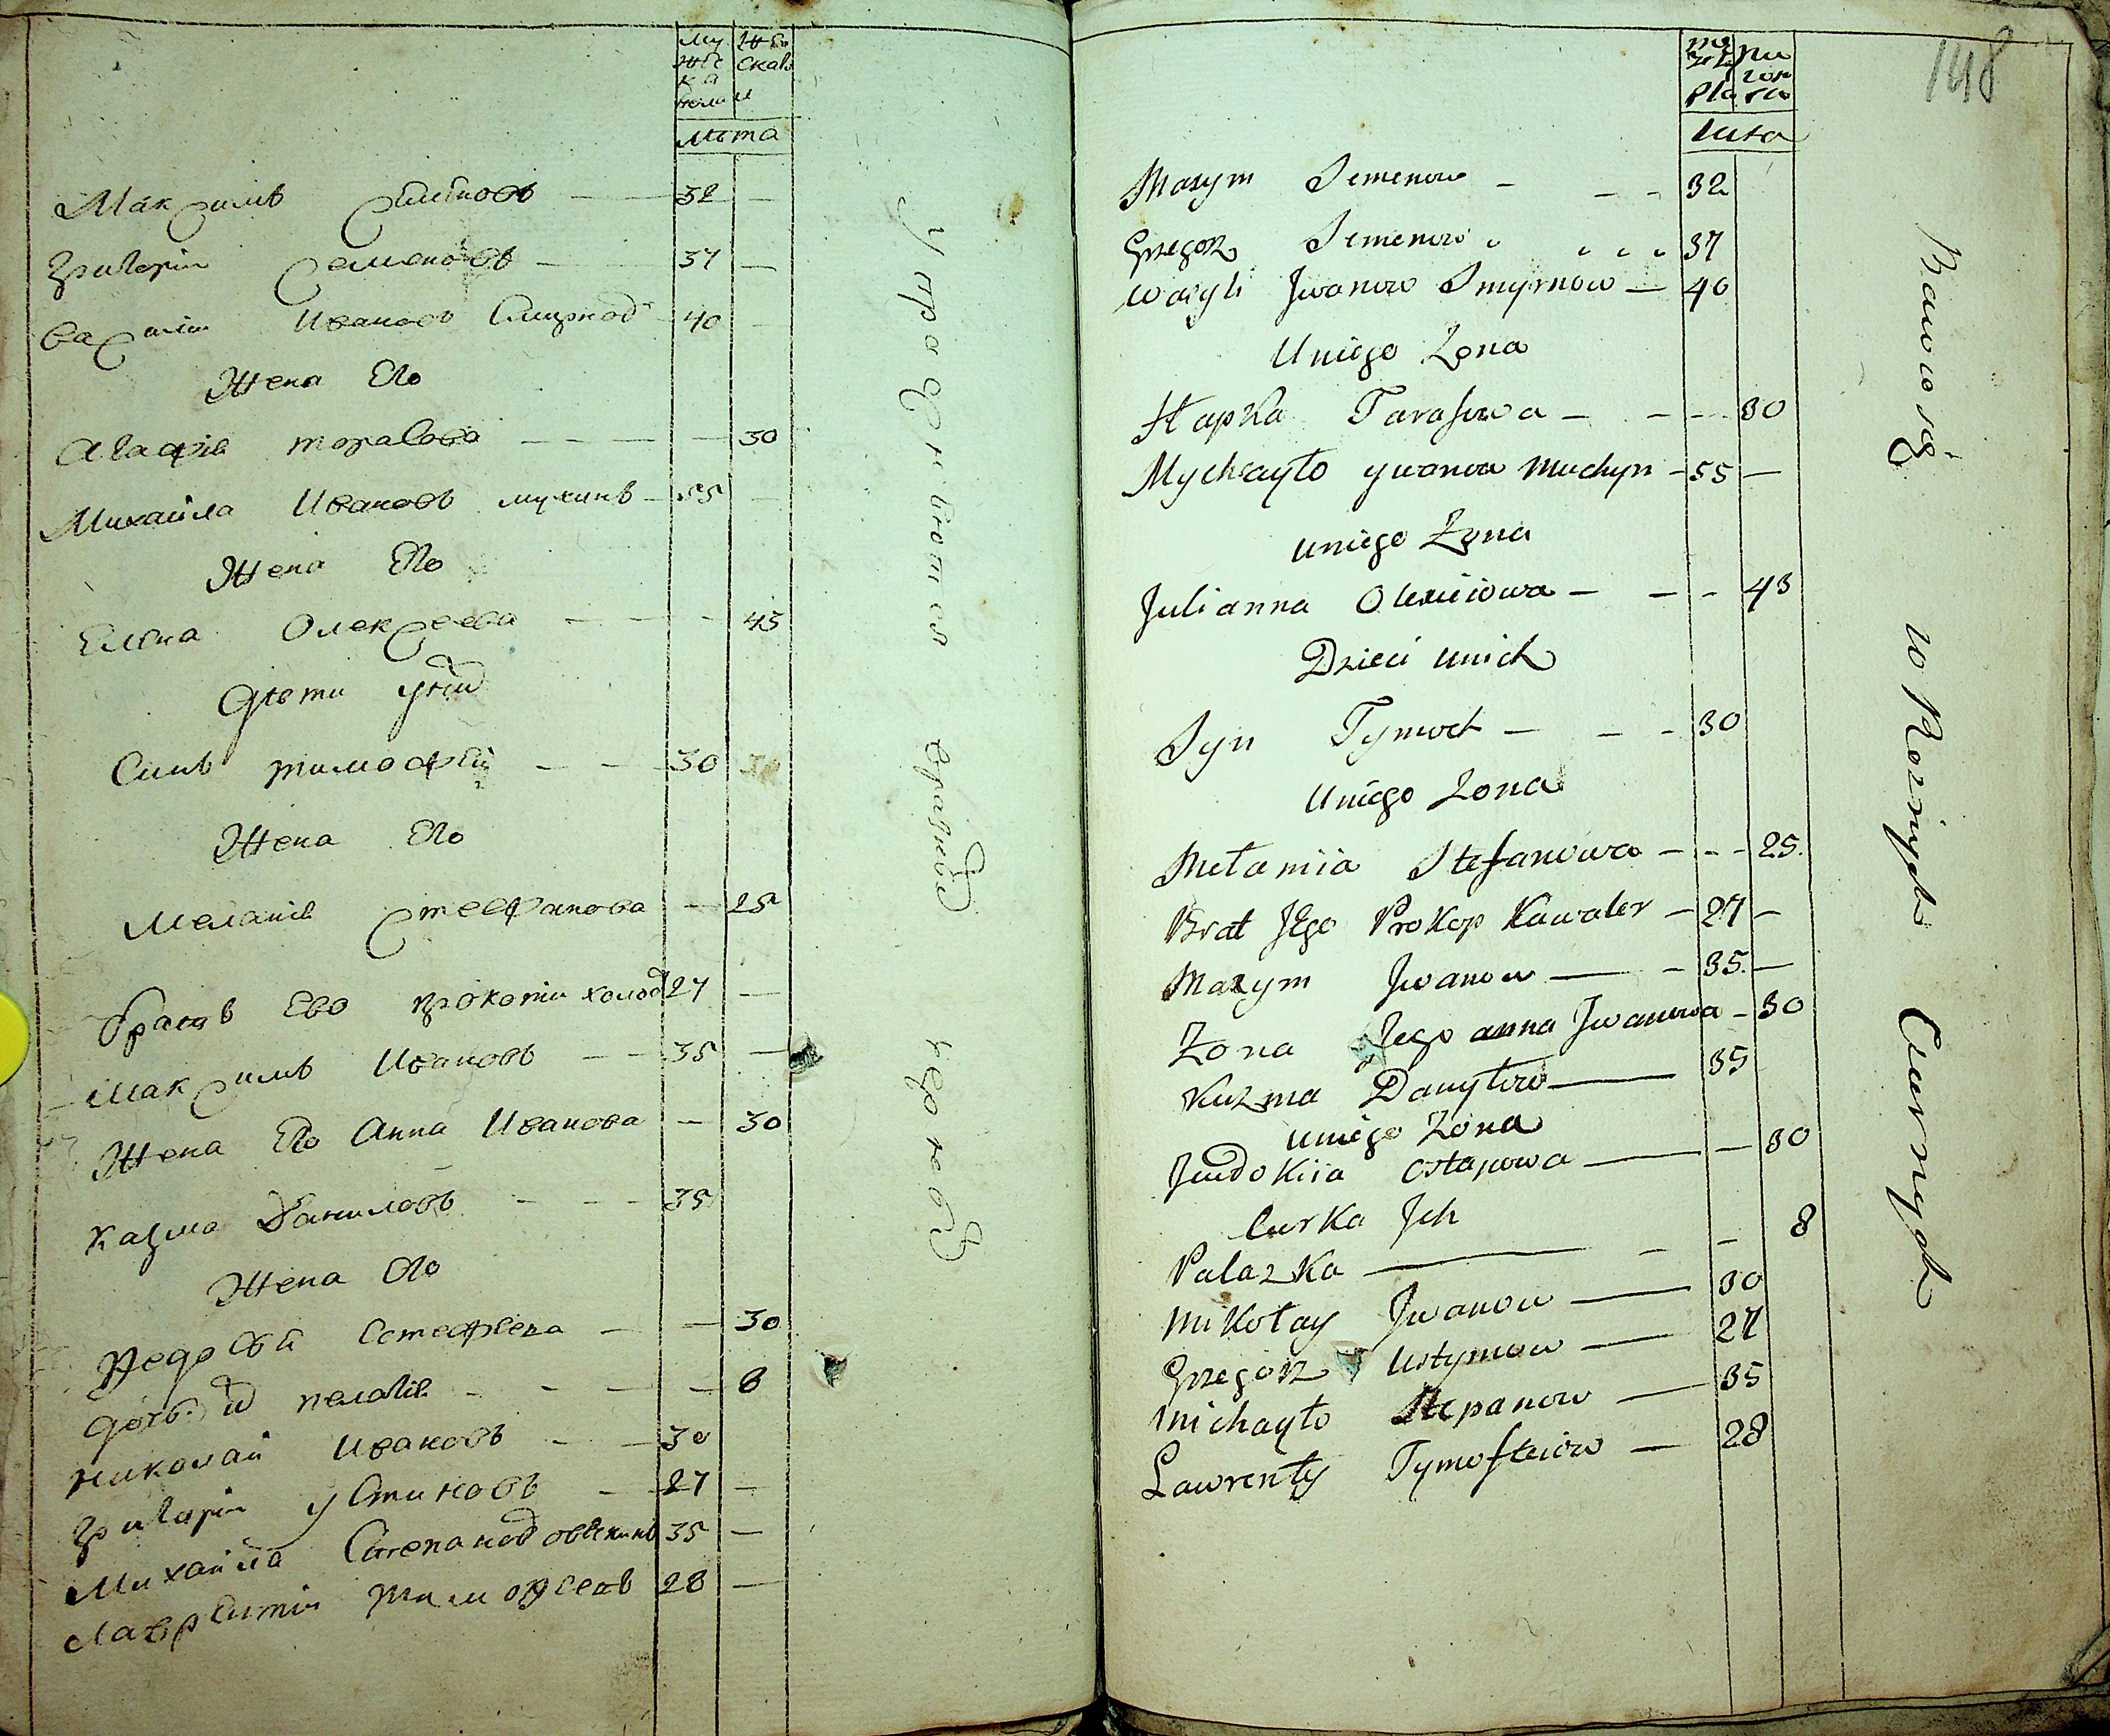 Му
жес
ка
полу
Же
скаго
и
лѣта
Максимъ Семеновъ — 32 —
Григорій Семеновъ — 37 —
Василій Ивановъ Смирновъ 40 —
Жена Его
Агафія Тарасова — 30
Михайла Ивановъ мухинъ — 55 —
Жена Его
Елена Олексеева — 45
Дѣти у них
Синъ тимофей — 30
Жена Его
Меланія Стефанова — 25
братъ Ево прокопи холос 27 —
Максимъ Ивановъ — 35 —
Жена Его Анна Иванова — 30
Казма Даниловъ — 35
Жена Его
Федосья — 30
дочь их пелагія — 8
Николай Ивановъ — 30
Григорій Устиновъ — 27 —
Михайла Степанов 35 —
Лаврентій Тимофеевъ 28 —
mę
zka
Pła
Nie
wia
Lata
148
Maxym Semenow - - - 32
Grzegorz Semenow 37
Wasyli Jwanow Smyrnow — 40
Uniego Zona
Hapka Tarasowa — - - - 30
Mychayło ywanow Muchyn - 55 —
uniego Zona
Julianna Olexiiowa — - - 43
Dzieci unich
Syn Tymoch — - - 30
Uniego Zona
Mełaniia Stefanowa — - - 25.
Brat Jego Prokop Kawaler — 27 —
Maxym Jwanow — - 35. —
Zona Jego anna Jwanowa - 30
Kuzma Danyłow — 35
uniego Zona
Jewdokiia Ostapowa — — 30
Curka Jch
Palazka — — - 8
Mikołay Jwanow — 30
Grzegorz Ustymow — 27
Michayło Stepanow — 35
Lawrenty Tymofteiow — 28
w Roznych Czarnych